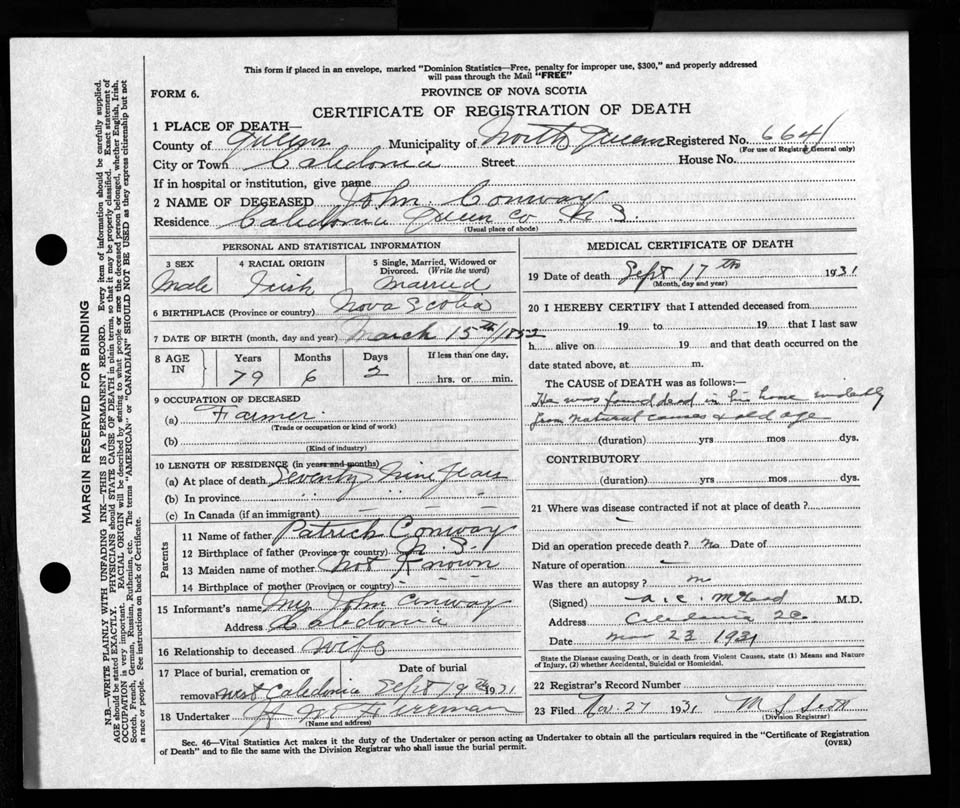 This form if placed in an envelope, marked "Dominion Statistics—Free, penalty for improper use, $300," and properly addressed
will pass through the Mail "FREE"
FORM 6.
PROVINCE OF NOVA SCOTIA
CERTIFICATE OF REGISTRATION OF DEATH
1 PLACE OF DEATH—
County of Queens Municipality of North Queens Registered No. 6641
(For use of Registrar General only)
City or Town Caledonia Street House No.
If in hospital or institution, give name
2 NAME OF DECEASED John Conway
Residence Caledonia Queen Co N S.
(Usual place of abode)
PERSONAL AND STATISTICAL INFORMATION
3 SEX
Male
4 RACIAL ORIGIN
Irish
5 Single, Married, Widowed or
Divorced. (Write the word)
Married
6 BIRTHPLACE (Province or country) Nova Scotia
7 DATE OF BIRTH (month, day and year) March 15th/1852
8 AGE
IN
Years Months Days If less than one day,
79 6 2 hrs. or min.
9 OCCUPATION OF DECEASED
(a) Farmer.
(Trade or occupation or kind of work)
(b)
(Kind of industry)
10 LENGTH OF RESIDENCE (in years and months)
(a) At place of death Seventy Nine Years
(b) In province " " - - -
(c) In Canada (if an immigrant) - - -
Parents
11 Name of father Patrick Conway
12 Birthplace of father (Province or country) N. S.
13 Maiden name of mother Not Known
14 Birthplace of mother (Province or country) - - -
15 Informant's name Mrs John Conway
Address Caledonia
16 Relationship to deceased Wife
17 Place of burial, cremation or
removal West Caledonia
Date of burial
Sept 19th 1931
18 Undertaker
(Name and address)
MEDICAL CERTIFICATE OF DEATH
19 Date of death Sept 17th 1931
(Month, day and year)
20 I HEREBY CERTIFY that I attended deceased from
19 to 19 that I last saw
h alive on 19 and that death occurred on the
date stated above, at m.
The CAUSE OF DEATH was as follows:—
He was found dead in his home evidently
from natural causes & old age
(duration) yrs mos dys.
CONTRIBUTORY
(duration) yrs mos dys.
21 Where was disease contracted if not at place of death?
Did an operation precede death? No Date of
Nature of operation
Was there an autopsy? no
(Signed) M.D.
Address Caledonia
Date Nov 23 1931
State the Disease causing Death, or in death from Violent Causes, state (1) Means and Nature
of Injury, (2) whether Accidental, Suicidal or Homicidal.
22 Registrar's Record Number
23 Filed Nov. 27 1931
(Division Registrar)
Sec. 46—Vital Statistics Act makes it the duty of the Undertaker or person acting as Undertaker to obtain all the particulars required in the "Certificate of Registration
of Death" and to file the same with the Division Registrar who shall issue the burial permit.
(OVER)
MARGIN RESERVED FOR BINDING
N.B.—WRITE PLAINLY WITH UNFADING INK—THIS IS A PERMANENT RECORD. Every item of information should be carefully supplied.
AGE should be stated EXACTLY. PHYSICIANS should STATE CAUSE OF DEATH in plain terms, so that it may be properly classified. Exact statement of
OCCUPATION is very important. RACIAL ORIGIN will be described by stating to what people or race the deceased person belonged, whether English, Irish,
Scotch, French, German, Russian, Ruthenian, etc. The terms "AMERICAN" or "CANADIAN" SHOULD NOT BE USED as they express citizenship but not
a race or people. See instructions on back of Certificate.